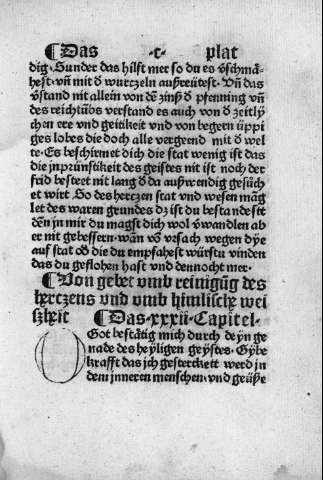 ¶Das ·c· plat
dig. Sunder das hilft mer so du es v̈schmä-
hest. vn̄ mit d̊ wurczeln außreütest. Vn̄ das
v̈stand nit allein von dē zinß d̊ pfenning vn̄
des reichtūbs verstand es auch von d̊ zeitly
chen ere vnd geitikeit vnd von begern üppi
ges lobes die doch alle vergend mit d̊ wel
te. Es beschirmet dich die stat wenig ist das
die jnprünstikeit des geistes nit ist noch der
frid besteet nit lang d̊ da außwendig gesüch
et wirt. So des herczen stat vnd wesen mäg
let des waren grundes dz ist du bestandest
den jn mir du magst dich wol v̈wandlen ab
er nit gebessern. wān vō vrsach wegen dye
auf stat ob die du empfahest würstu vinden
das du geflohen hast vnd dennocht mer.
¶Von gebet vmb reinigūg des
herczens vnd vmb himlische wei
szheit ¶Das.xxxii.Capitel.
O Got bestätig mich durch deyn ge
nade des heyligen geystes. Gybe
krafft das jch gesterckett werd jn
dem jnneren menschen. vnd